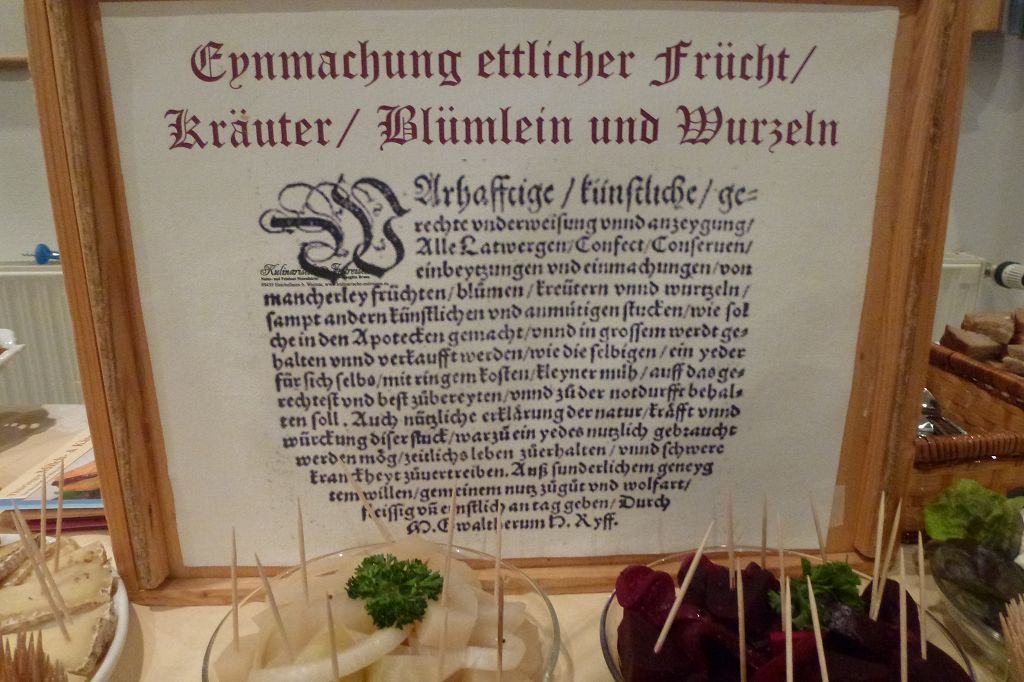 Eynmachung ettlicher Frücht/
Kräuter/ Blümlein und Wurzeln
WArhafftige / künstliche / ge=
rechte vnderweisung vnnd anzeygung/
Alle Latwergen/Confect/Conseruen/
einbeytzungen vnd einmachungen/von
mancherley früchten/blůmen/kreütern vnnd wurtzeln/
sampt andern künstlichen vnd anmůtigen stucken/wie sol
che in den Apotecken gemacht/vnnd in grossem werdt ge=
halten vnnd verkaufft werden/wie die selbigen / ein yeder
für sich selbs/mit ringem kosten/kleyner müh/auff das ge=
rechtest vnd best zůbereyten/vnnd zů der notdurfft behal=
ten soll. Auch nützliche erklärung der natur/kräfft vnnd
würckung diser stuck/warzů ein yedes nutzlich gebraucht
werden mög/zeitlichs leben zůerhalten/vnnd schwere
kranckheyt zůuertreiben. Auß sunderlichem geneyg
tem willen/gemeinem nutz zůgůt vnd wolfart/
fleissig vñ ernstlich an tag geben/Durch
M. Gwaltherum H. Ryff.